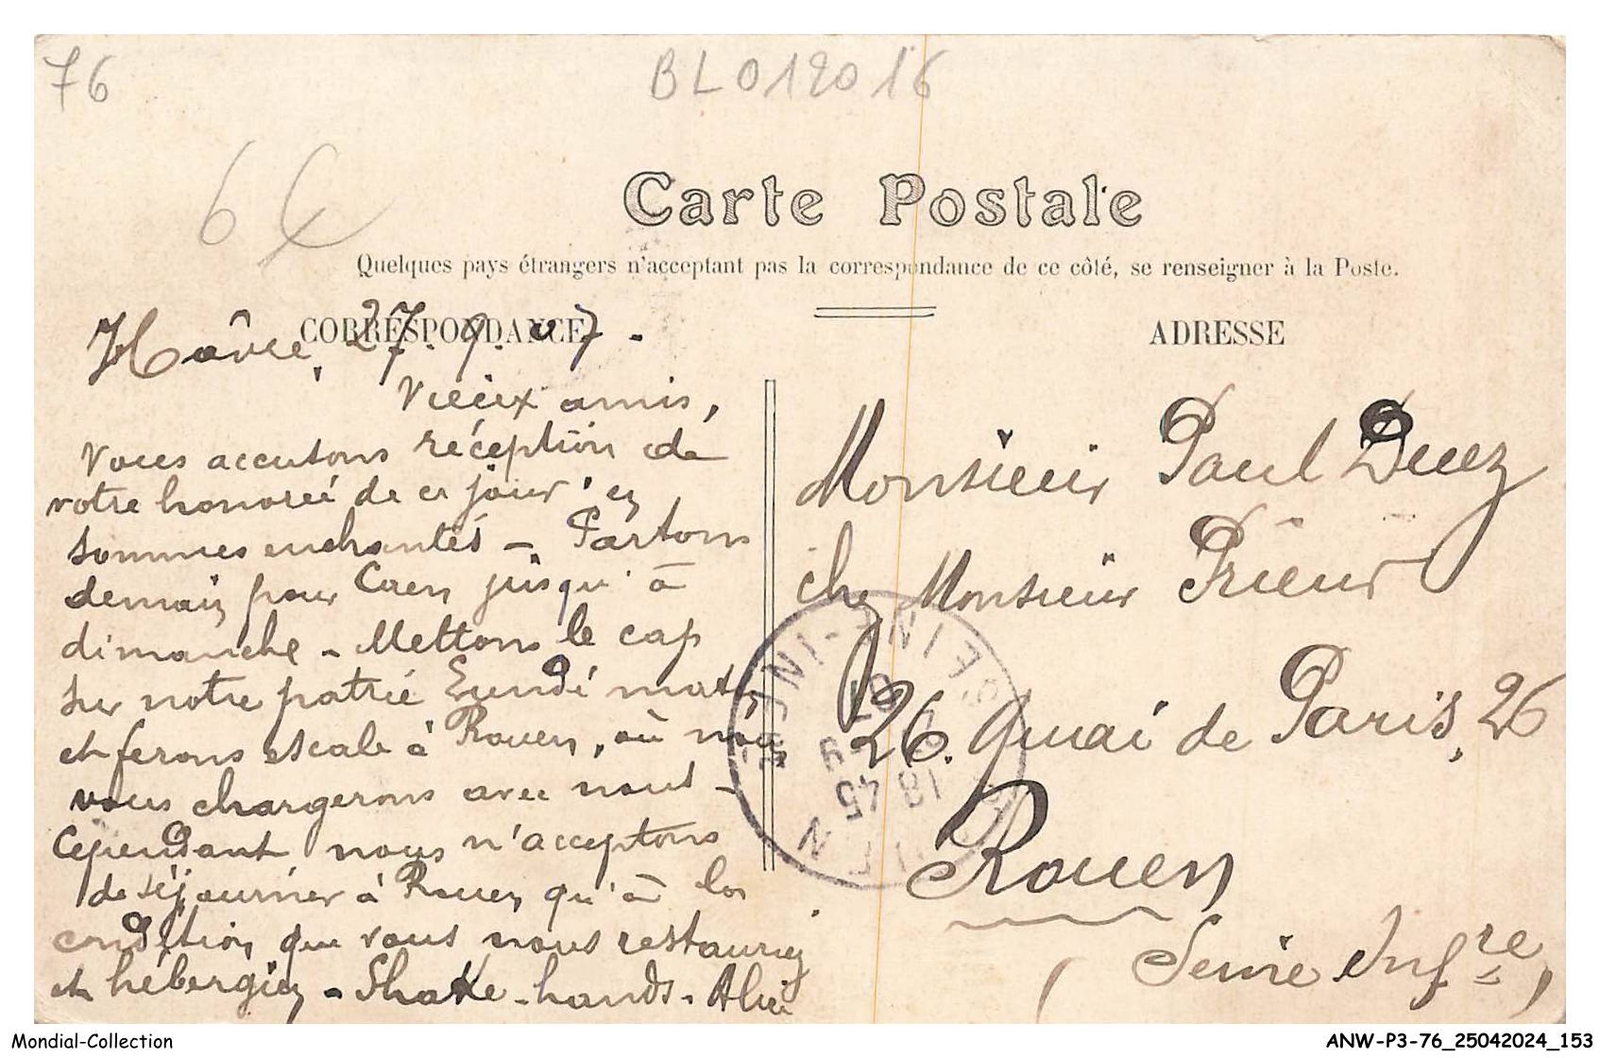 76
BL012016
6€
Carte Postale
Quelques pays étrangers n'acceptant pas la correspondance de ce côté, se renseigner à la Poste.
CORRESPONDANCE
ADRESSE
Hâvre, 27.9.07.
Vieux amis,
Vous accusons réception de
votre honorée de ce jour, en
sommes enchantés -. Partons
demain pour Caen jusqu'à
dimanche - Mettons le cap
sur notre patrie Lundi matin
et ferons escale à Rouen, où nous
vous chargerons avec nous -
Cependant nous n'acceptons
de séjourner à Rouen qu'à la
condition que vous nous restauriez
et hébergiez - Shake-hands.
Monsieur Paul Duez
chez Monsieur Prieur
26. Quai de Paris, 26
Rouen
(Seine Infre)
SEINE-INFRE
18 45
Mondial-Collection
ANW-P3-76_25042024_153